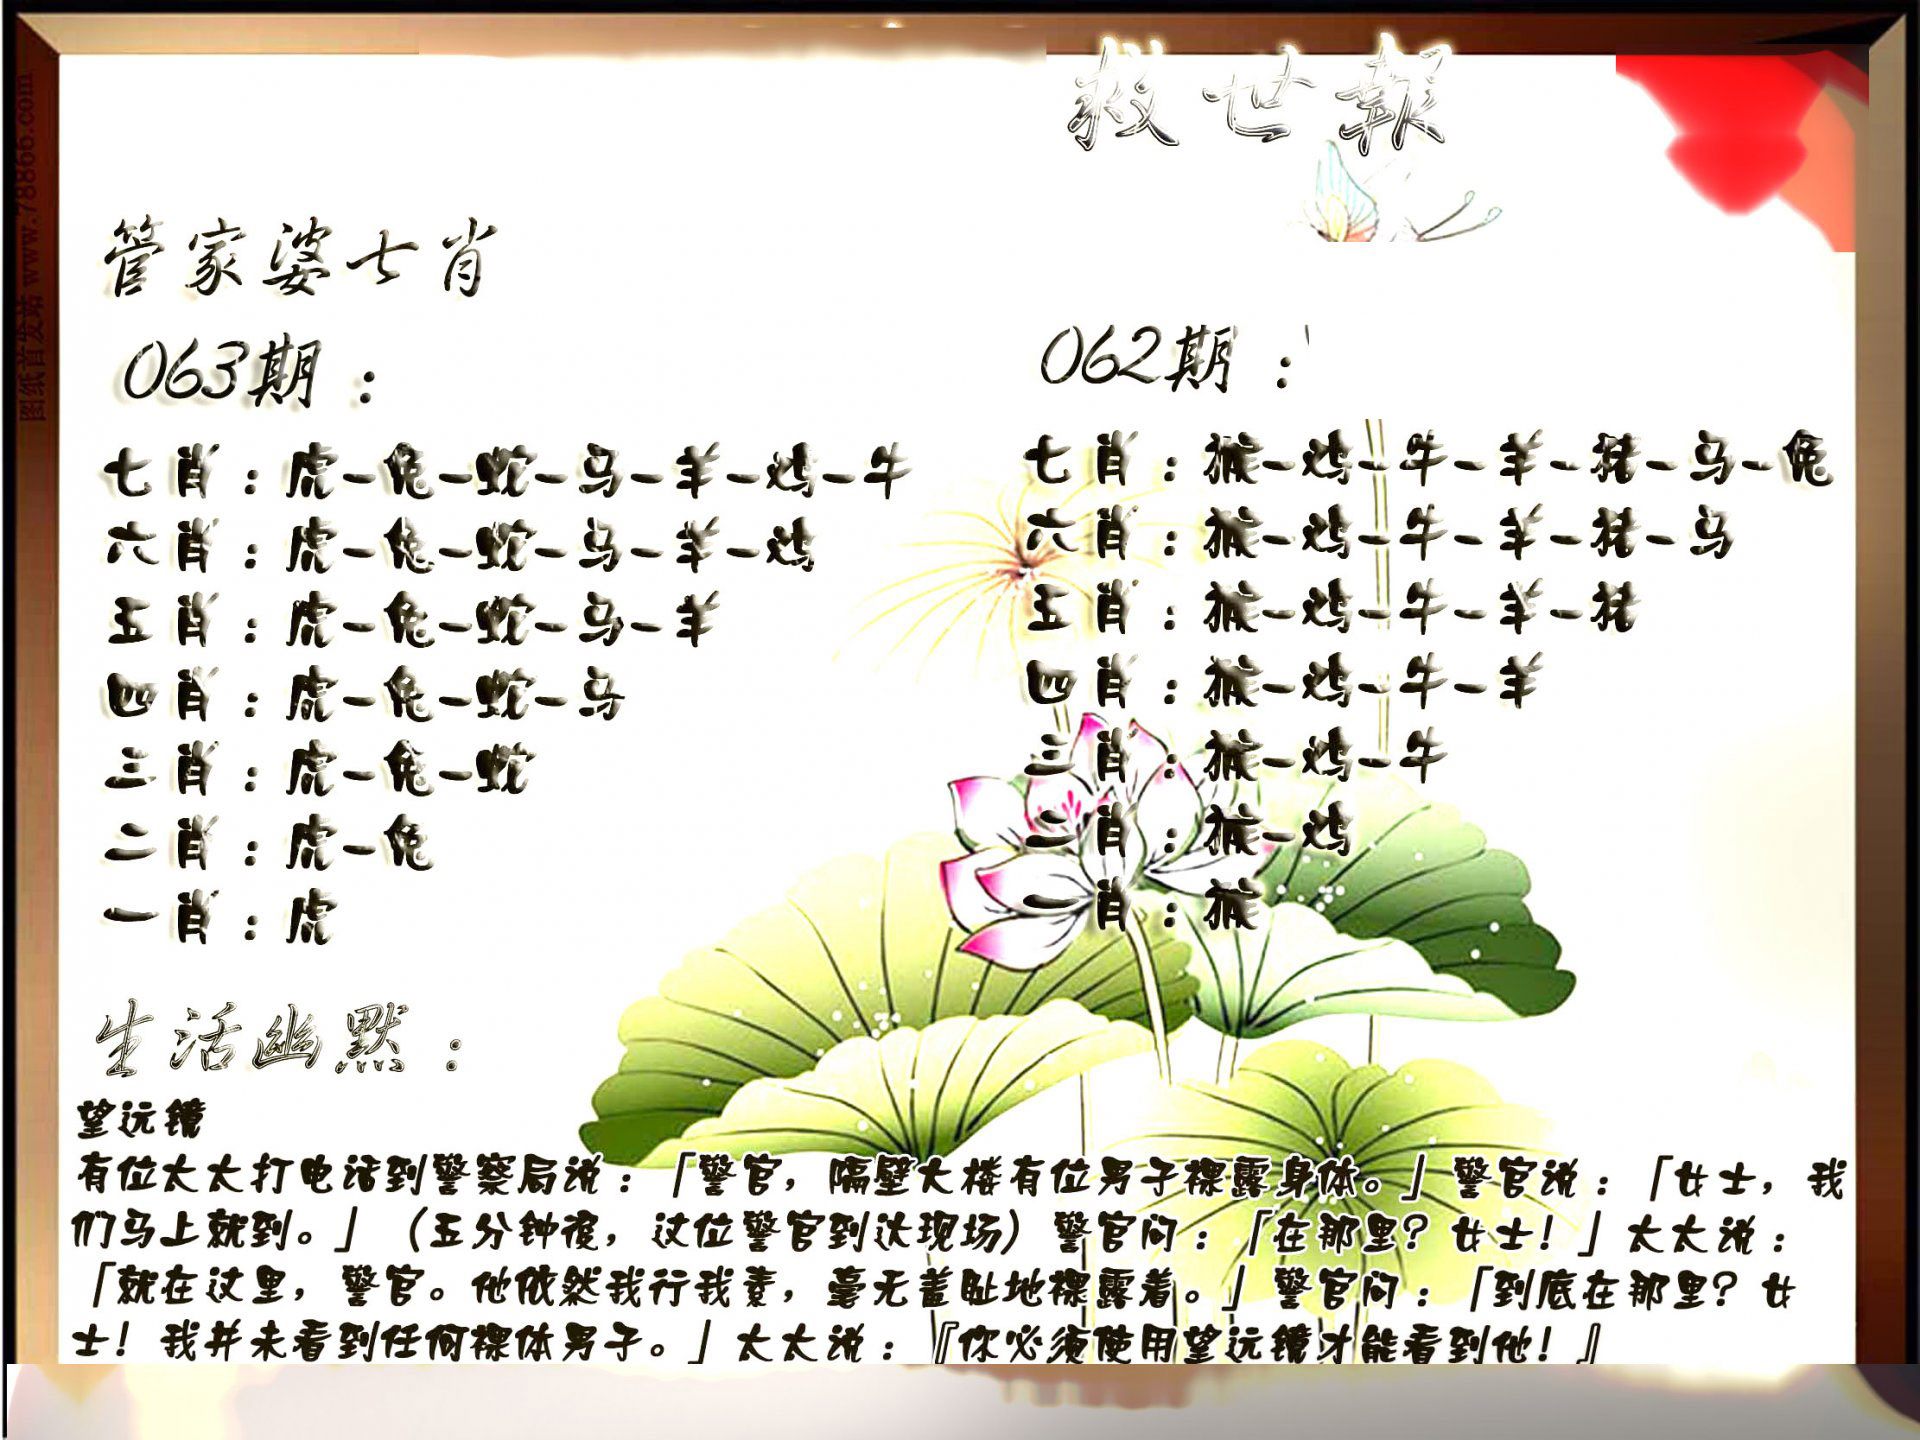 救世報
管家婆七肖
063期：
七肖：虎-兔-蛇-马-羊-鸡-牛
六肖：虎-兔-蛇-马-羊-鸡
五肖：虎-兔-蛇-马-羊
四肖：虎-兔-蛇-马
三肖：虎-兔-蛇
二肖：虎-兔
一肖：虎
062期：
七肖：猴-鸡-牛-羊-猪-马-兔
六肖：猴-鸡-牛-羊-猪-马
五肖：猴-鸡-牛-羊-猪
四肖：猴-鸡-牛-羊
三肖：猴-鸡-牛
二肖：猴-鸡
一肖：猴
生活幽默：
望远镜
有位太太打电话到警察局说：「警官，隔壁大楼有位男子裸露身体。」警官说：「女士，我
们马上就到。」（五分钟後，这位警官到达现场）警官问：「在那里？女士！」太太说：
「就在这里，警官。他依然我行我素，毫无羞耻地裸露着。」警官问：「到底在那里？女
士！我并未看到任何裸体男子。」太太说：『你必须使用望远镜才能看到他！』
图纸首发站 www.78866.com